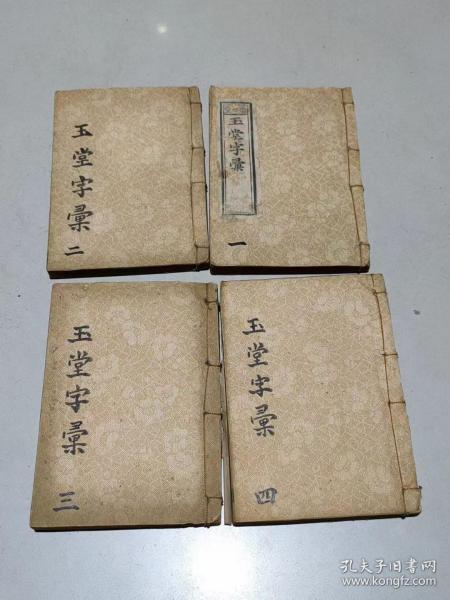 玉堂字彙
一
玉堂字彙
二
玉堂字彙
三
玉堂字彙
四
孔夫子旧书网
www.kongfz.com